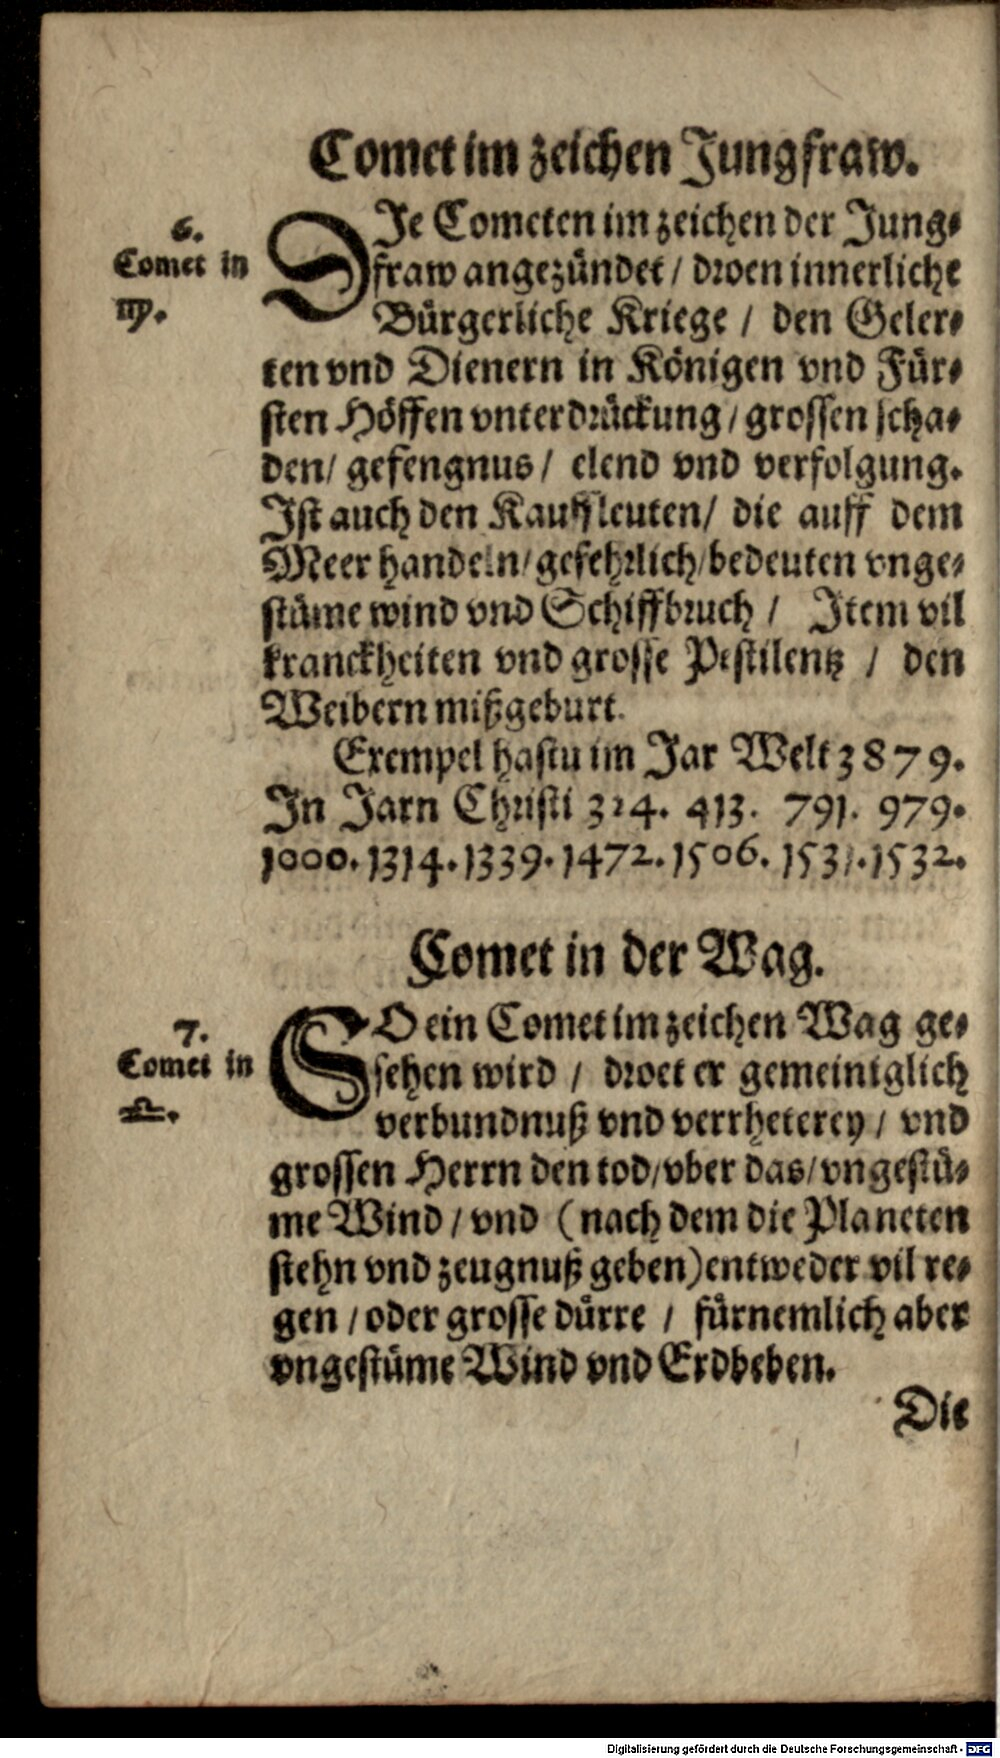 Comet im zeichen Jungfraw.
6.
Comet in
♍.
DJe Cometen im zeichen der Jung⸗
fraw angezündet / droen innerliche
Bürgerliche Kriege / den Geler⸗
ten vnd Dienern in Königen vnd Für⸗
sten Höffen vnterdrückung / grossen scha⸗
den / gefengnus / elend vnd verfolgung.
Jst auch den Kauffleuten / die auff dem
Meer handeln / gefehrlich / bedeuten vnge⸗
stüme wind vnd Schiffbruch / Jtem vil
kranckheiten vnd grosse Pestilentz / den
Weibern mißgeburt.
Exempel hastu im Jar Welt 3879.
Jn Jarn Christi 324. 413. 791. 979.
1000. 1314. 1339. 1472. 1506. 1531. 1532.
Comet in der Wag.
7.
Comet in
♎.
SO ein Comet im zeichen Wag ge⸗
sehen wird / droet er gemeiniglich
verbundnuß vnd verrheterey / vnd
grossen Herrn den tod / vber das / vngestü⸗
me Wind / vnd (nach dem die Planeten
stehn vnd zeugnuß geben) entweder vil re⸗
gen / oder grosse dürre / fürnemlich aber
vngestüme Wind vnd Erdbeben.
Die
Digitalisierung gefördert durch die Deutsche Forschungsgemeinschaft - DFG